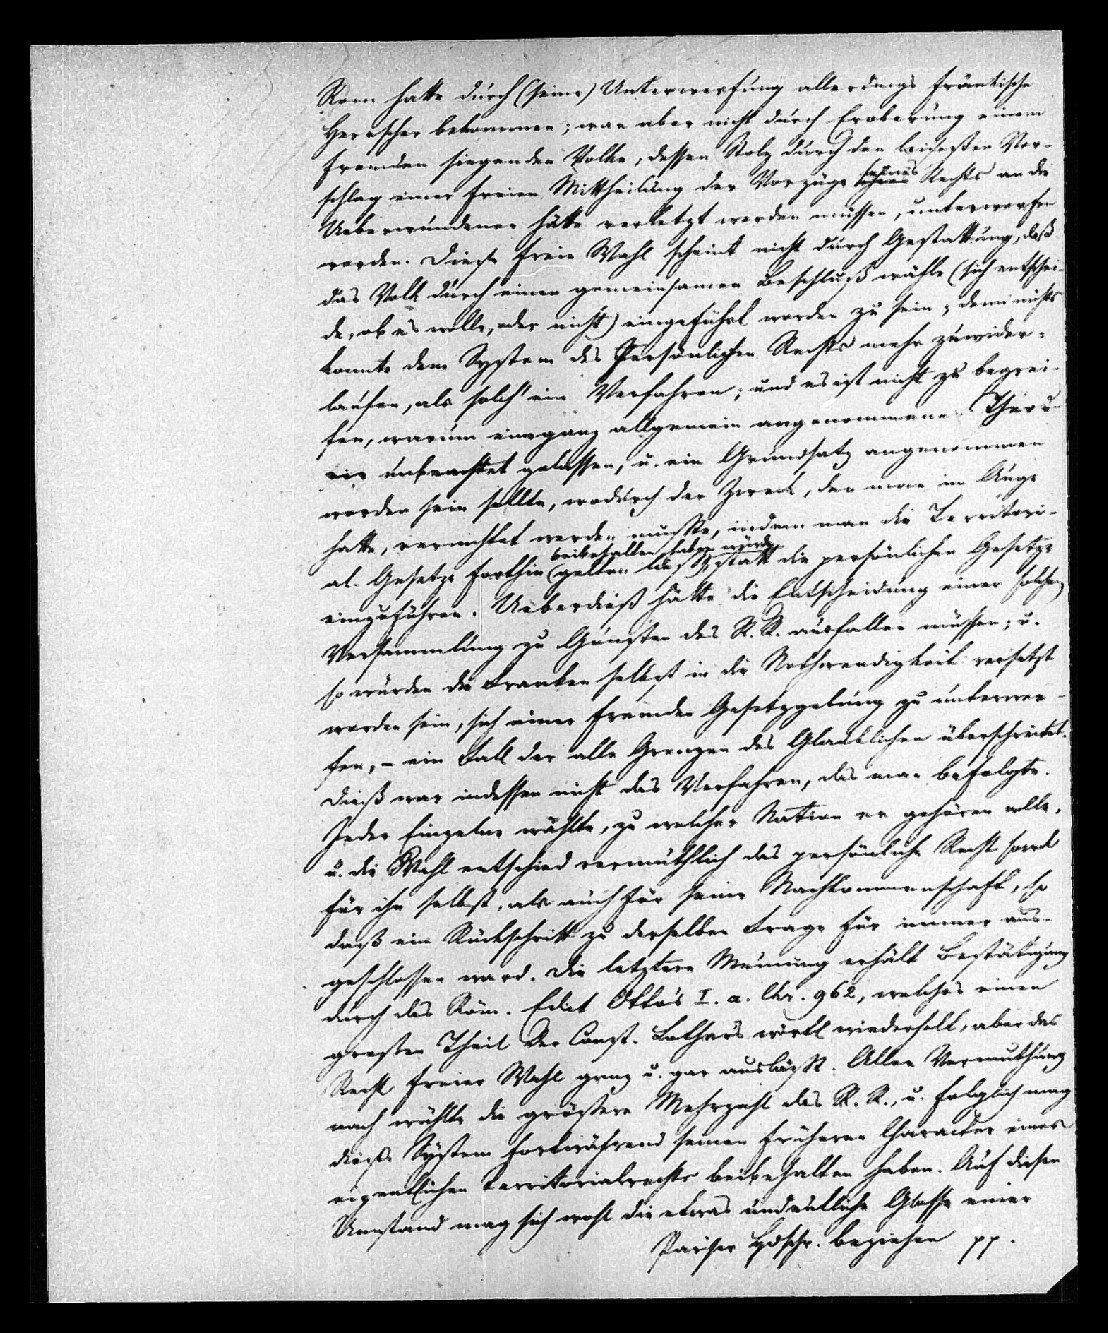 Rom hatte durch (seine) Unterwerfung allerdings fränkische
Herrscher bekommen; war aber nicht durch Eroberung einem
fremden siegenden Volke, dessen Stolz durch den leidesten Vor-
schlag einer freien Mittheilung der Vorzüge seines Rechts an die
Ueberwundenen hätte verletzt werden müssen, unterworfen
worden. Diese freie Wahl scheint nicht durch Gestattung, daß
das Volk durch einen gemeinsamen Beschluß wähle (sich entschei-
de, ob es wolle, oder nicht) eingeführt worden zu sein; denn nichts
konnte dem System des Persönlichen Rechts mehr zuwider-
laufen, als solch' ein Verfahren; und es ist nicht zu begrei-
fen, warum eine ganz allgemein angenommene Theo-
rie unbeachtet gelassen, u. ein Grundsatz angenommen
worden sein sollte, wodurch der Zweck, den man im Auge
hatte, vernichtet werden mußte, indem man die Territori-
beibehalten haben würde
al. Gesetze forthin (gelten läßt) statt die persönlichen Gesetze
einzuführen. Ueberdieß hätte die Entscheidung einer solchen
Versammlung zu Gunsten des R. R. ausfallen müssen; u.
so würden die Franken selbst in die Nothwendigkeit versetzt
worden sein, sich einer fremden Gesetzgebung zu unterwer-
fen, – ein Fall der alle Grenzen des Glaublichen überschreitet.
Dieß war indessen nicht das Verfahren, das man befolgte.
Jeder Einzelne wählte, zu welcher Nation er gehören wolle,
u. die Wahl entschied vermuthlich das persönliche Recht sowol
für ihn selbst, als auch für seine Nachkommenschaft, so
daß ein Rückschritt zu derselben Frage für immer aus-
geschlossen ward. Die letztere Meinung erhält Bestätigung
durch das Röm. Edict Otto's I. a. Chr. 962, welches einen
grossen Theil der Const. Lothar's wörtl wiederholt, aber das
Recht freier Wahl ganz u. gar ausläßt. Allen Vermuthung
nach wählte die größere Mehrzahl das R. R., u. folglich mag
dieß System fortwährend seinen früheren Character eines
eigentlichen Territorialrechts beibehalten haben. Auf diesen
Umstand mag sich wohl die etwas undeutliche Glosse einer
Pariser Hdschr. beziehen pp.